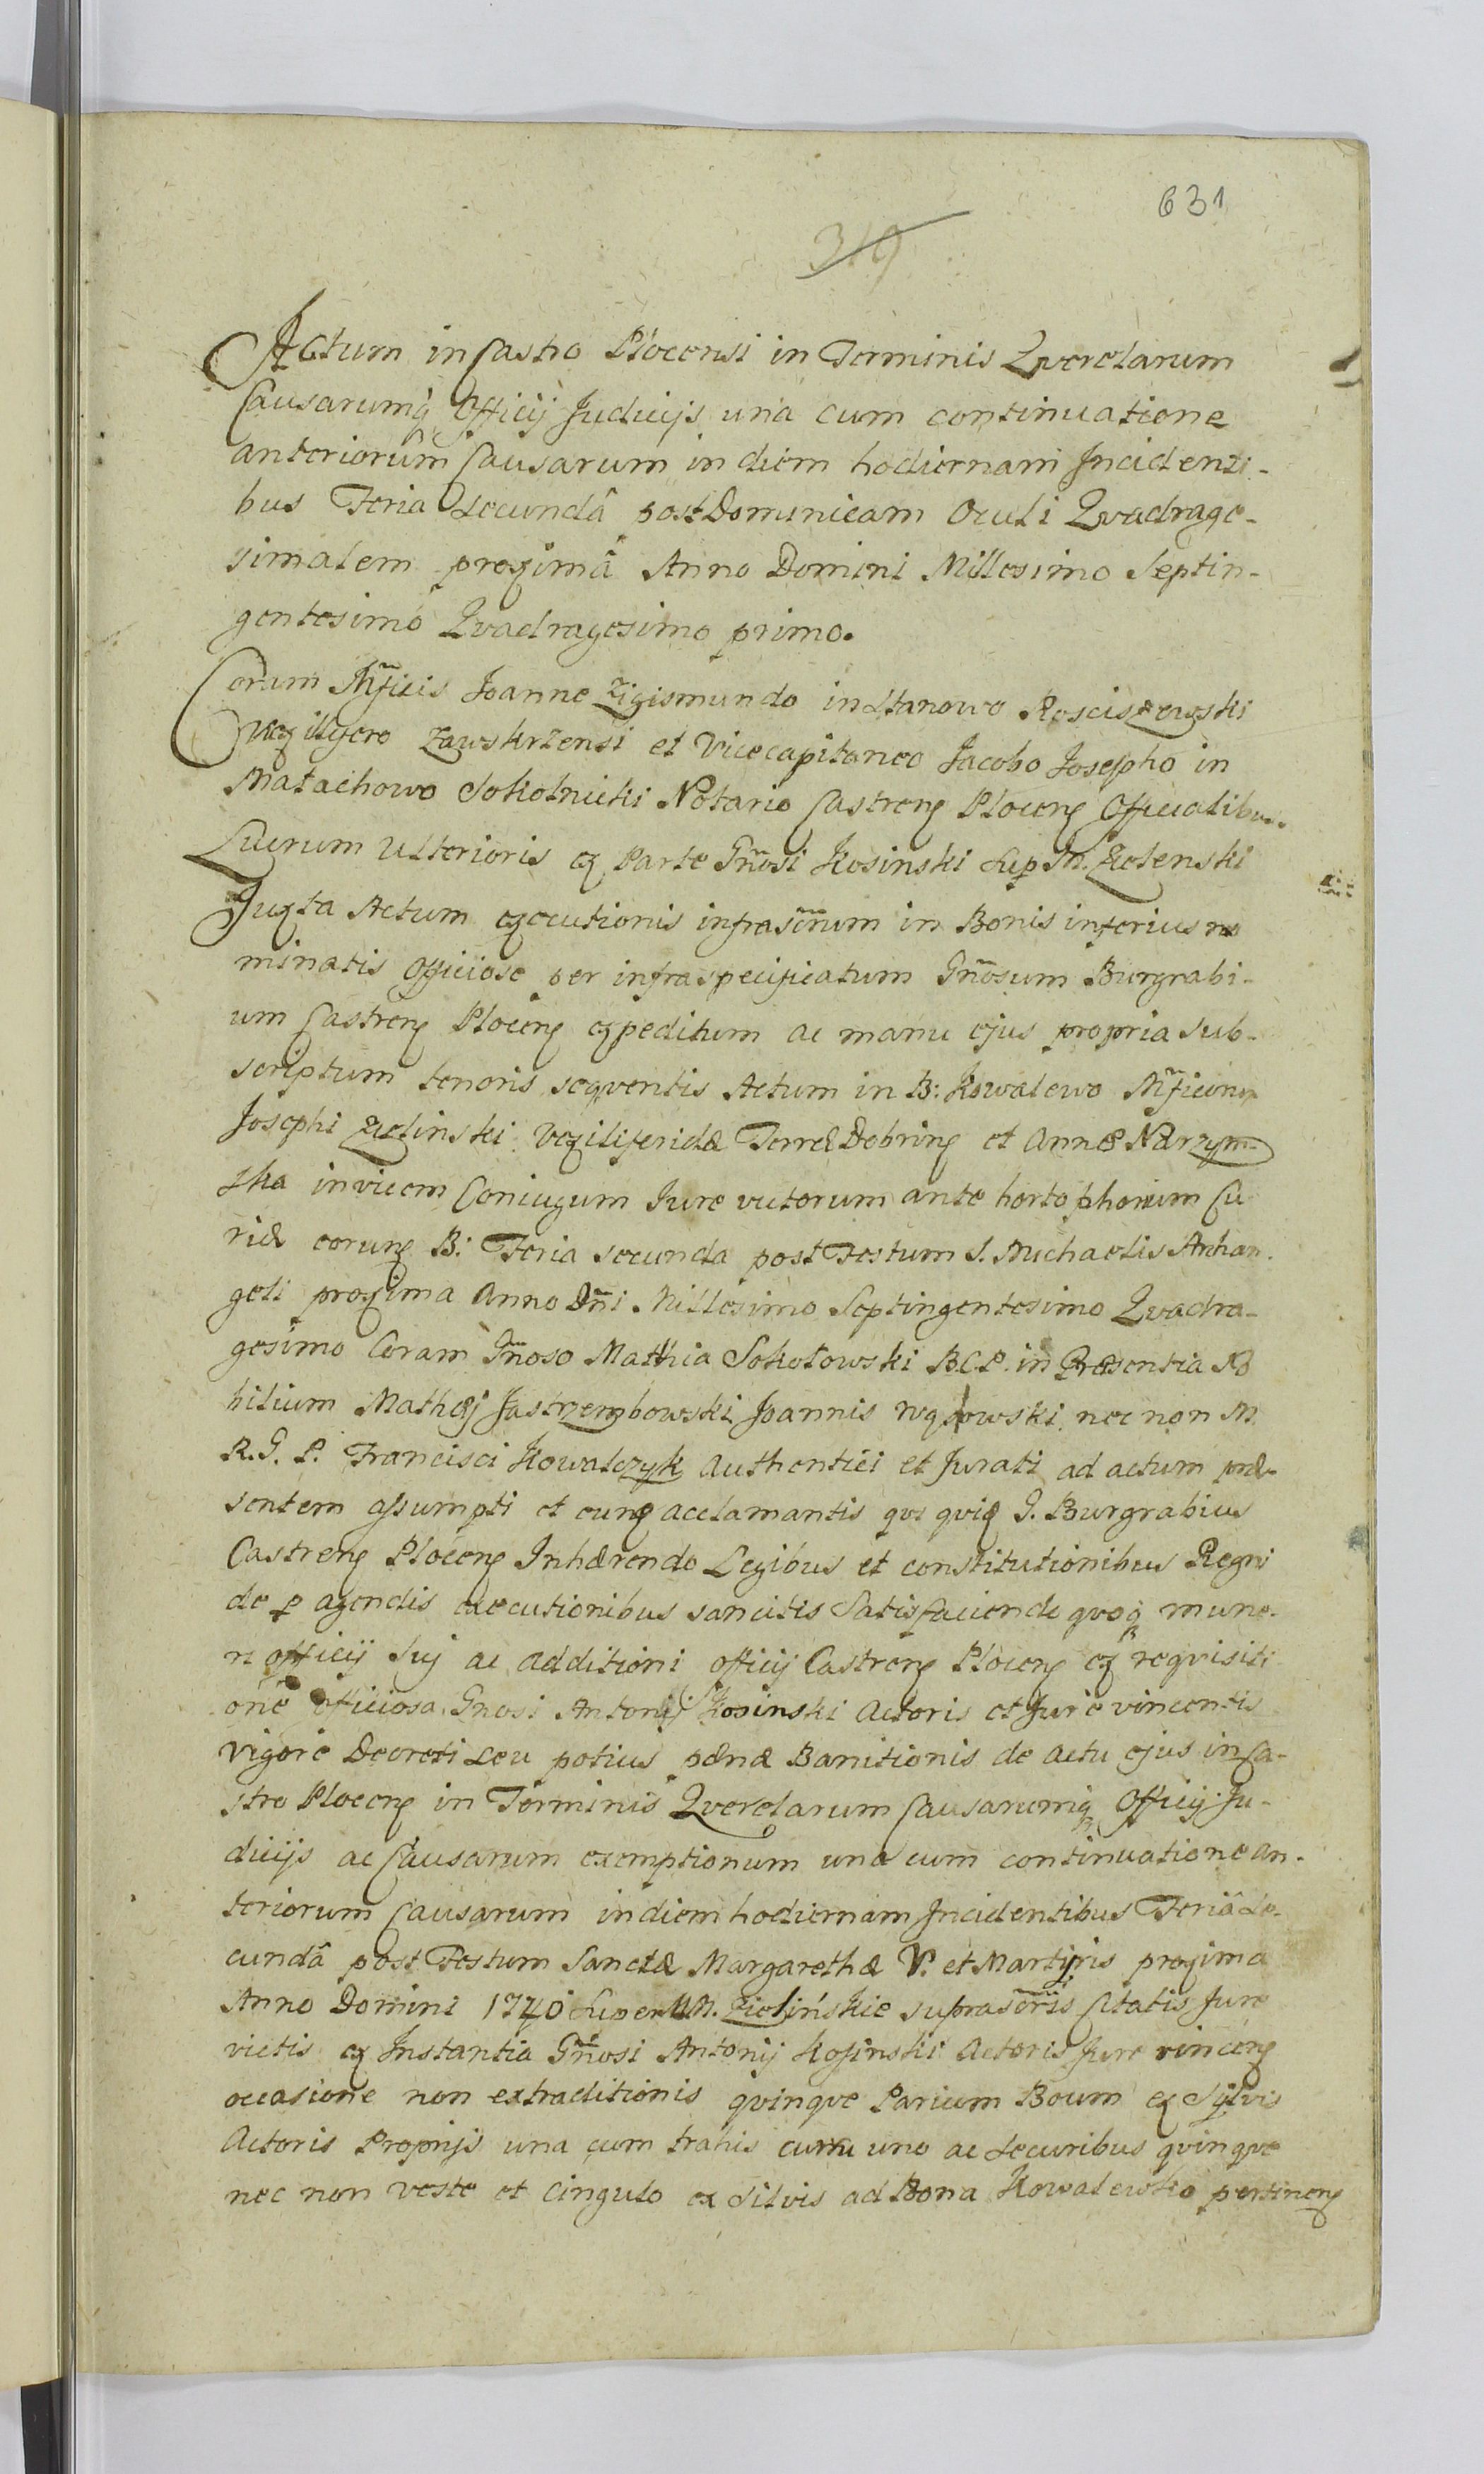 631
319
Actum in Castro Plocensi in Terminis Qverelarum
Causarumq, Officij Judicijs una cum continuatione
anteriorum Causarum in diem hodiernam Incidenti-
bus Feria Secundâ post Dominicam Oculi Qvadrage-
simalem proximâ Anno Domini Millesimo Septin-
gentesimo Qvadragesimo primo.
Coram Mficis Joanne Zigismundo in Stanowo Rosciszewski
Vexillifero Zawskrzensi et Vicecapitaneo Jacobo Josepho in
Matachowo Sokolnicki Notario Castren Plocen Officialibus.
Lucrum Ulterioris ex Parte Gnosi Kosinski Sup M. Zielenski
Juxta Actum executionis infrascrium in Bonis inferius no
minatis Officiose per infraspecificatum Gnosum Burgrabi-
um Castren Plocen expeditum ac manu ejus propria sub-
scriptum tenoris seqventis Actum in B: Kowalewo Mficorum
Josephi Zielinski Vexiliferidæ Terræ Dobrin et Annæ Narzym-
ska invicem Coniugum Jure victorum ante horto phorium Cu
riæ eorun B: Feria secunda post Festum S. Michaelis Archan.
geli proxima Anno Dni Millesimo Septingentesimo Qvadra-
gesimo Coram Gnoso Mathia Sokołowski B.C.P. in Præsentia No
bilium Mathæj Jastrzembowski Joannis nec non M.
R. G. P. Francisci Kowalczyk Authentici et Jurati ad actum præ-
sentem assumpti et eunq acclamantis qvi qvid G. Burgrabius
Castren Plocen Inhærendo Legibus et constitutionibus Regni
de p agendis executionibus sancitis Satisfaciendo qvoq mune-
ri officij Sui ac additioni officij Castren Plocen ex reqvisiti
one officiosa Gnosi Antonij Kosinski Actoris et Jure vincentis
vigore Decreti seu potius pænæ Banitionis de actu ejus in Ca-
stro Plocen in Terminis Qverelarum Causarumq Officij Ju-
dicijs ac Causarum exemptionum una cum continuatione an-
teriorum Causarum in diem hodiernam Incidentibus Feriâ Se-
cundâ post Festum Sanctæ Margarethæ V. et Martijris proxima
Anno Domini 1740 Super MM. Zielińskie suprascriis Citatis Jure
victis ex Instantia Gnosi Antonij Kosinski Actoris Jure vincen
occasione non extraditionis qvinqve Parium Boum ex Sylvis
Actoris Proprijs una cum trahis curru uno ac securibus qvinqve
nec non veste et cingulo ex silvis ad Bona Kowalewko pertinen